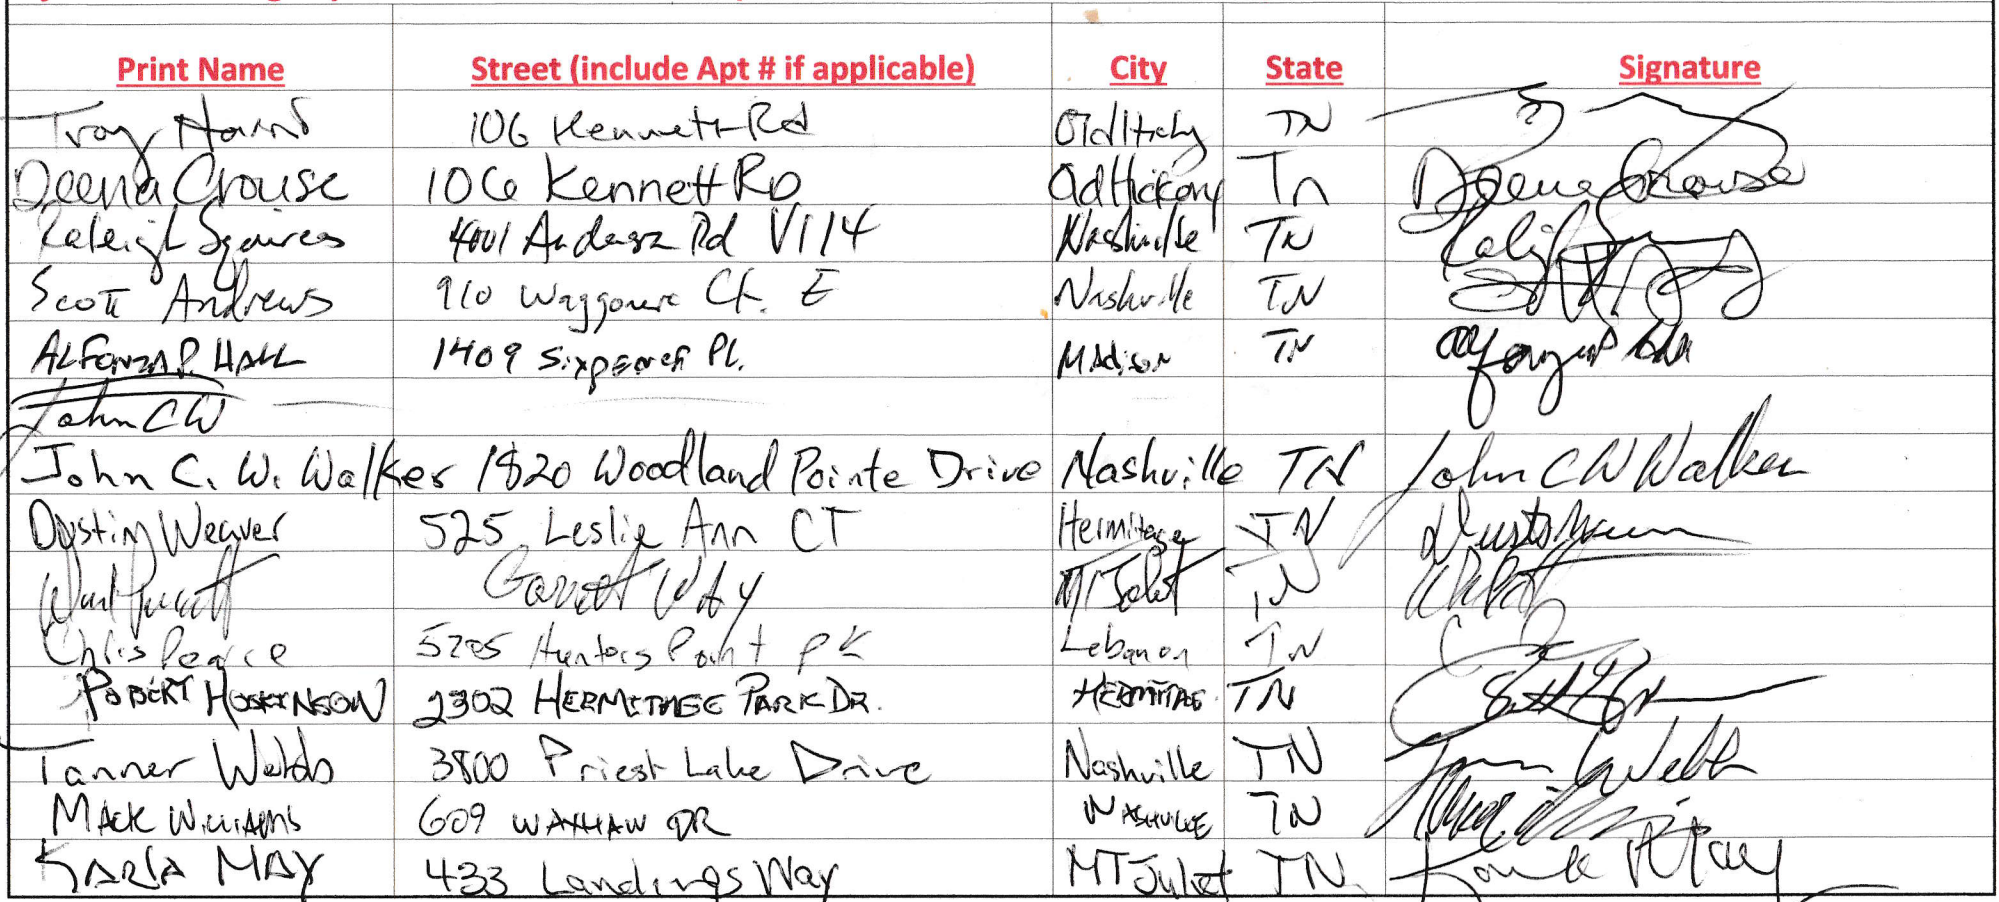 Print Name Street (include Apt # if applicable) City State Signature
Troy 106 Kennett Rd Old Hickory TN
Deena Crouse 106 Kennett RD Old Hickory Tn Deena Crouse
Raleigh Squires 4001 Anderson Rd V114 Nashville TN
Scott Andrews 910 Waggoner Ct. E Nashville TN
ALFONZA P. HALL 1409 Sixpence PL. MADison TN
John CW
John C. W. Walker 1820 Woodland Pointe Drive Nashville TN John CW Walker
Dustin Weaver 525 Leslie Ann CT Hermitage TN
Garrett WAY MT Juliet TN
Chris Pearce 5205 Hunters Point PK Lebanon TN
ROBERT HOSKINSON 2302 HERMITAGE PARK DR. HERMITAGE TN
Tanner Webb 3800 Priest Lake Drive Nashville TN
MACK WILLIAMS 609 WAXHAW DR NASHVILLE TN
KARLA MAY 433 Landings Way MT Juliet TN Karla May